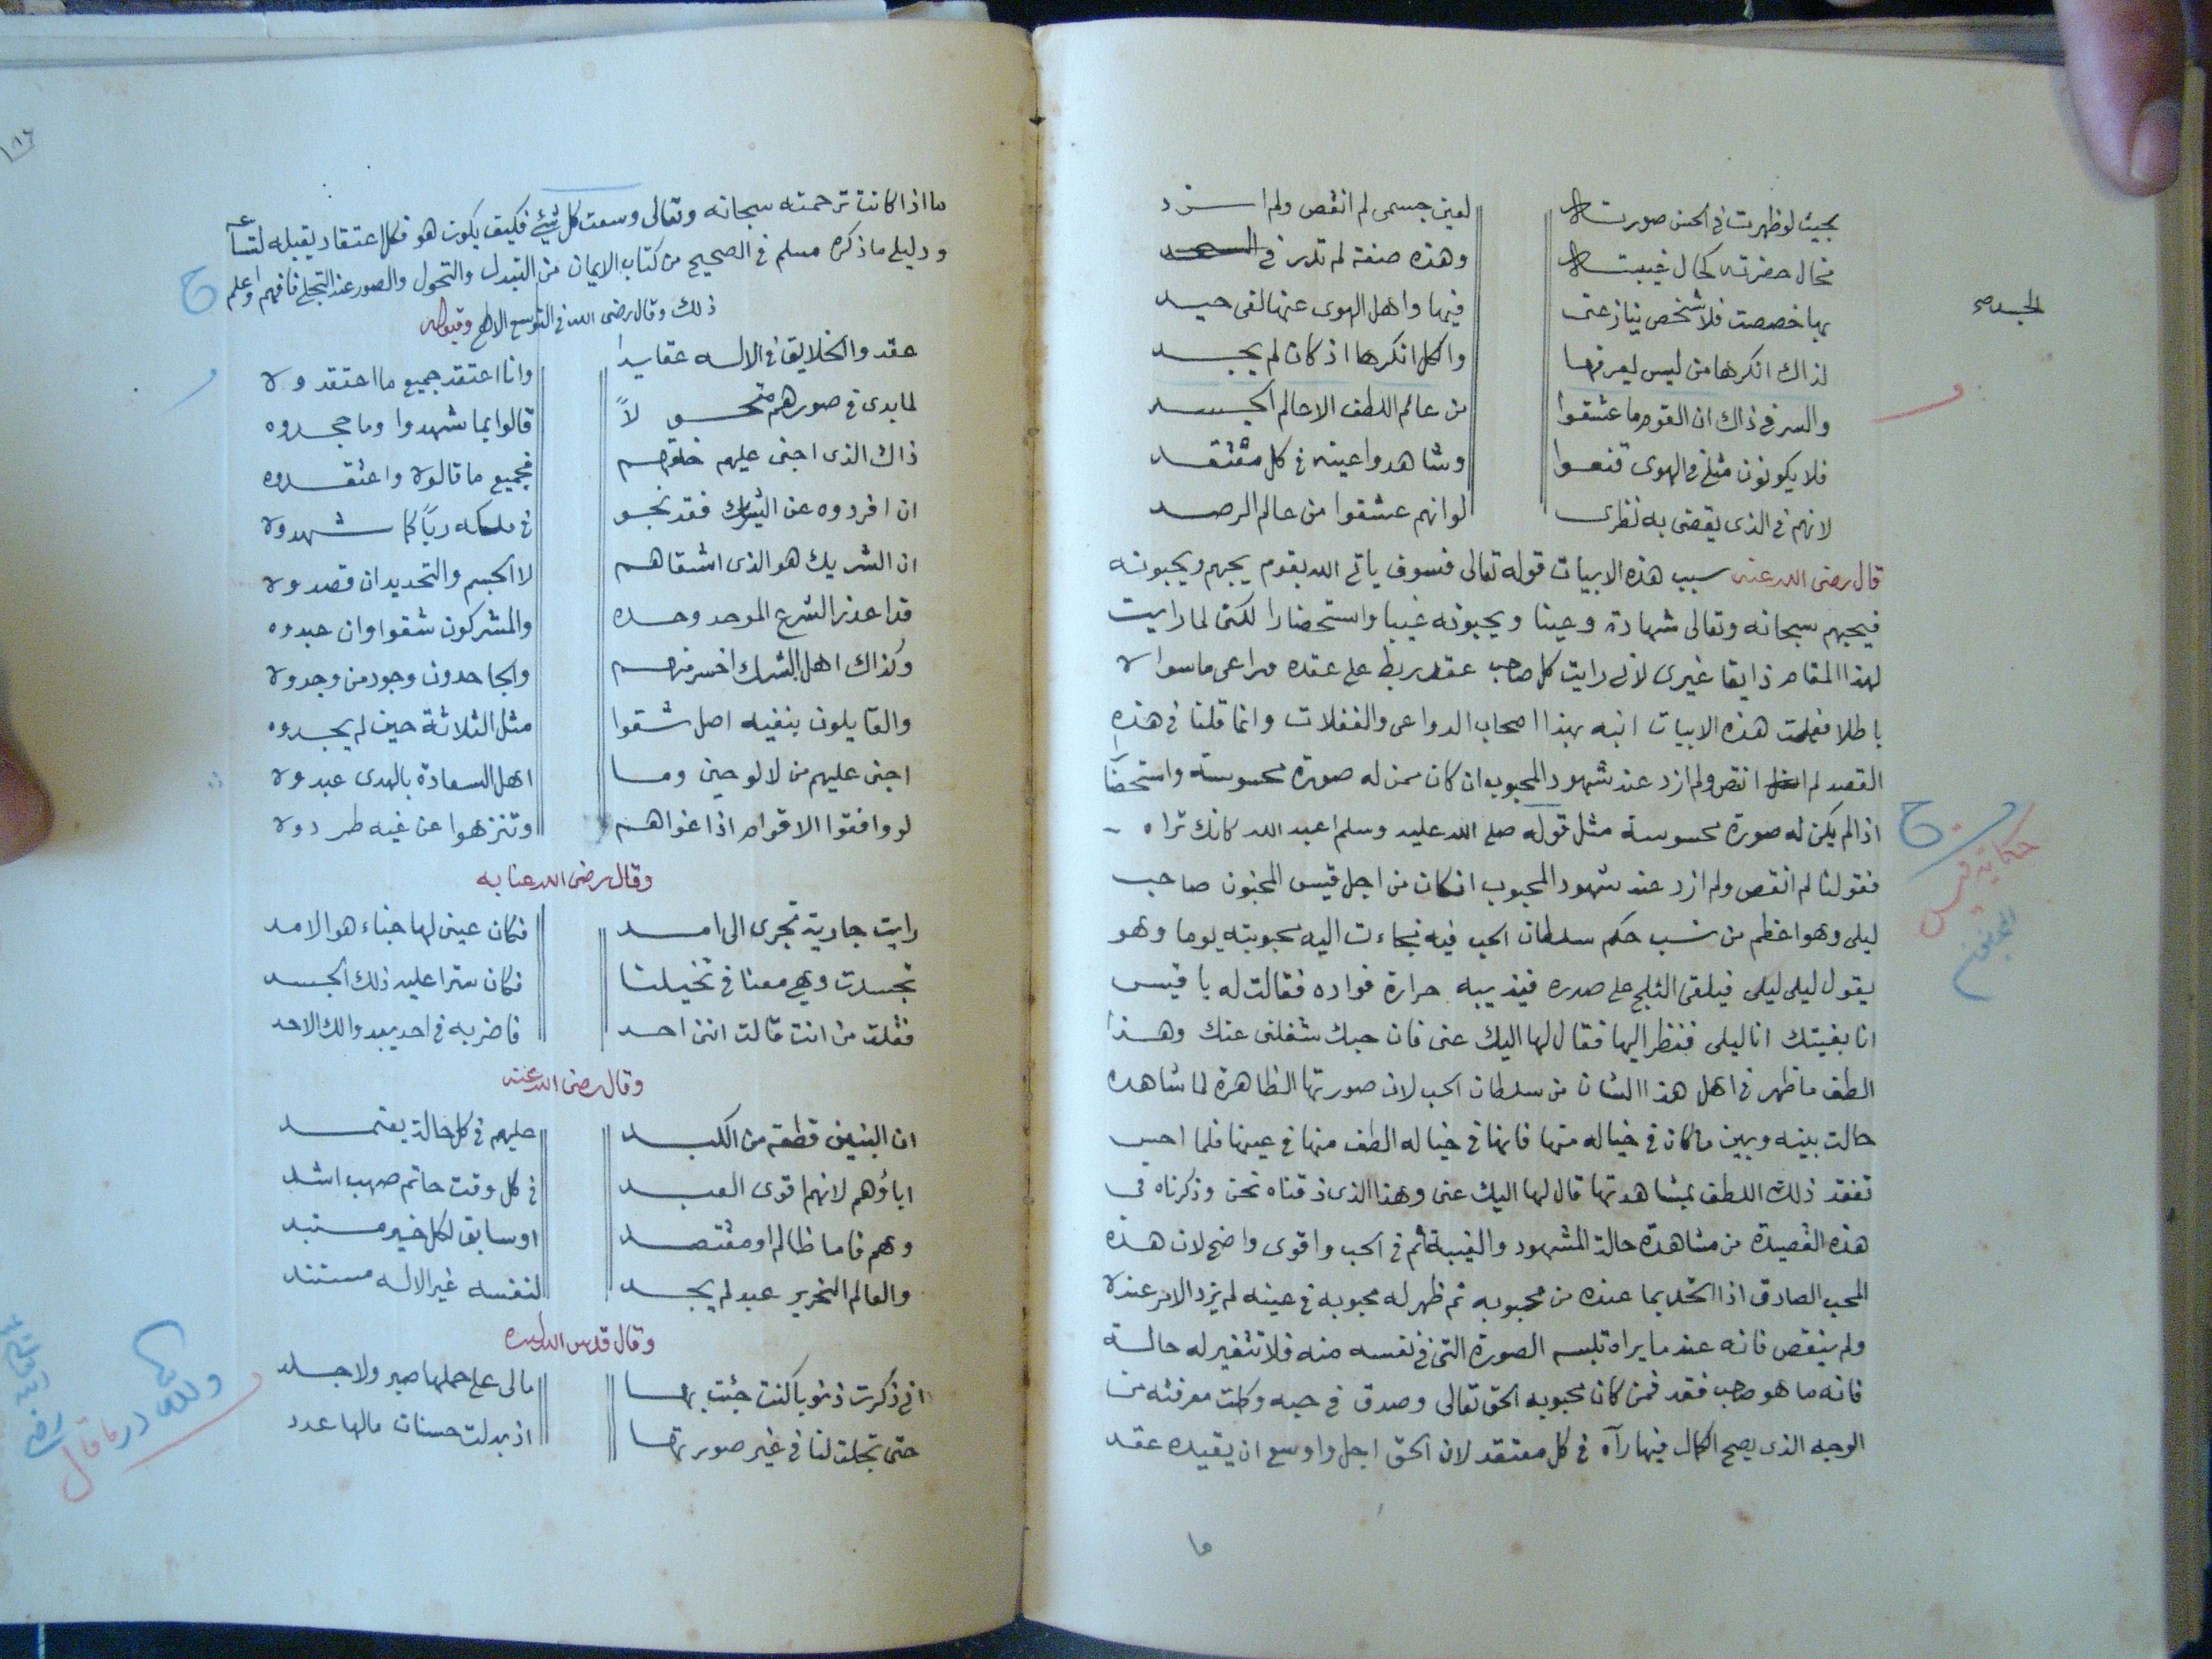 بحيث لو ظهرت في الحسن صورته لعين جسمى لم انقص ولم ازد
فحال حضرته كحال غيبته وهذه صفة لم تدر في
بها خصصت فلا شخص ينازعنى فيها واهل الهوى عنها لفى حيد
لذاك انكرها من ليس يعرفها والكل انكرها اذ كان لم يجد
والسر في ذاك ان القوم ما عشقوا من عالم اللطف الا عالم الجسد
فلا يكونون مثلى في الهوى قنعوا وشاهدوا عينه في كل معتقد
لانهم في الذى يقضى به نظرى لو انهم عشقوا من عالم الرصد
قال رضى الله عنه سبب هذه الابيات قوله تعالى فسوف ياتى الله بقوم يحبهم ويحبونه
فيحبهم سبحانه وتعالى شهادة وعينا ويحبونه غيبا واستحضارا لكنى لما رايت
لهذا المقام ذايقا غيرى لانى رايت كل صاحب عقد ربط على عقده مراعى ما سواه
باطلا فعملت هذه الابيات انبه بهذا اصحاب الدواعى والغفلات وانما قلنا في هذه
القصيد لم انقص ولم ازد عند شهود المحبوب ان كان ممن له صورة محسوسة واستحضا
اذا لم يكن له صورة محسوسة مثل قوله صلى الله عليه وسلم اعبد الله كانك تراه
فقولنا لم انقص ولم ازد عند شهود المحبوب انكان من اجل قيس المجنون صاحب
ليلى وهو اعظم من نسب حكم سلطان الحب فيه فجاءت اليه محبوبته يوما وهو
يقول ليلى ليلى فيلقى الثلج على صدره فيذيبه حرارة فواده فقالت له يا قيس
انا بغيتك انا ليلى فنظر اليها فقال لها اليك عنى فان حبك شغلنى عنك وهذا
الطف ما ظهر في اهل هذا الشان من سلطان الحب لان صورتها الظاهرة لما شاهده
حالت بينه وبين ما كان في خياله منها فانها في خياله الطف منها في عينها فلما احس
تفقد ذلك اللطف بمشاهدتها قال لها اليك عنى وهذا الذى ذقناه نحن وذكرناه فى
هذه القصيدة من مشاهدة حالة الشهود والغيبة ثم في الحب واقوى واضح لان هذه
المحب الصادق اذا اتحد بما عنده من محبوبه ثم ظهر له محبوبه في عينه لم يزد الامر عنده
ولم ينقص فانه عند ما يراه تلبسه الصورة التى في نفسه منه فلا تتغير له حالة
فانه ما هو صاحب فقد فمن كان محبوبه الحق تعالى وصدق في حبه وكملت معرفته من
الوجه الذى يصح الكمال فيها رآه في كل معتقد لان الحق اجل واوسع ان يقيده عقد
ما
الجسد صح
حكاية قيس
ما اذا كانت رحمته سبحانه وتعالى وسعت كل شئ فكيف يكون هو فكل اعتقاد يقبله
ودليلى ما ذكره مسلم في الصحيح من كتاب الايمان من التبدل والتحول والصور عند التجلى فافهم واعلم
ذلك وقال رضى الله في التوسع الالهى وقبوله
عقد والخلايق في الاله عقايدا وانا اعتقد جميع ما اعتقدوه
لما بدى في صورهم متحولاً قالوا بما شهدوا وما جحدوه
ذاك الذى اجنى عليهم خلفهم فجميع ما قالوه واعتقدوه
ان افردوه عن الشرك فقد نحو في ملكه رباً كما شهدوه
ان الشريك هو الذى اشقاهم لا الجسم والتحديد ان قصدوه
قد اعذر الشرع الموحد وحده والمشركون شقوا وان عبدوه
وكذاك اهل الشرك اخسر منهم والجاحدون وجود من وجدوه
والقايلون بنفيه اصل شقوا مثل الثلاثة حين لم يجدوه
اجنى عليهم من لالو حين وما اهل السعادة بالهدى عبدوه
لو وافقوا الاقوام اذ اغواهم وتنزهوا عن غيه طردوه
وقال رضى الله عنا به
رايت جارية تجرى الى امد فكان عينى لها جناء هو الامد
تجسدت وهي معنا في تخيلنا فكان سترا عليه ذلك الجسد
فقلت من انت قالت اننى احد فاضربه في احد يبدو الك الاحد
وقال رضى الله عنه
ان البنين قطعة من الكبد عليهم في كل حالة يعتمد
اباؤهم لانهم اقوى العبد في كل وقت حاتم صهب اشد
وهم فاما ظالم او مقتصد او سابق لكل خير مستبد
والعالم النحرير عبد لم يجد لنفسه غير الاله مستند
وقال قدس الله سره
انى ذكرت ذنوبا كنت جئت بها مالى على حملها صبر ولا جلد
حتى تجلت لنا في غير صورتها اذ بدلت حسنات مالها عدد
ولله در ما قال
١٨٦